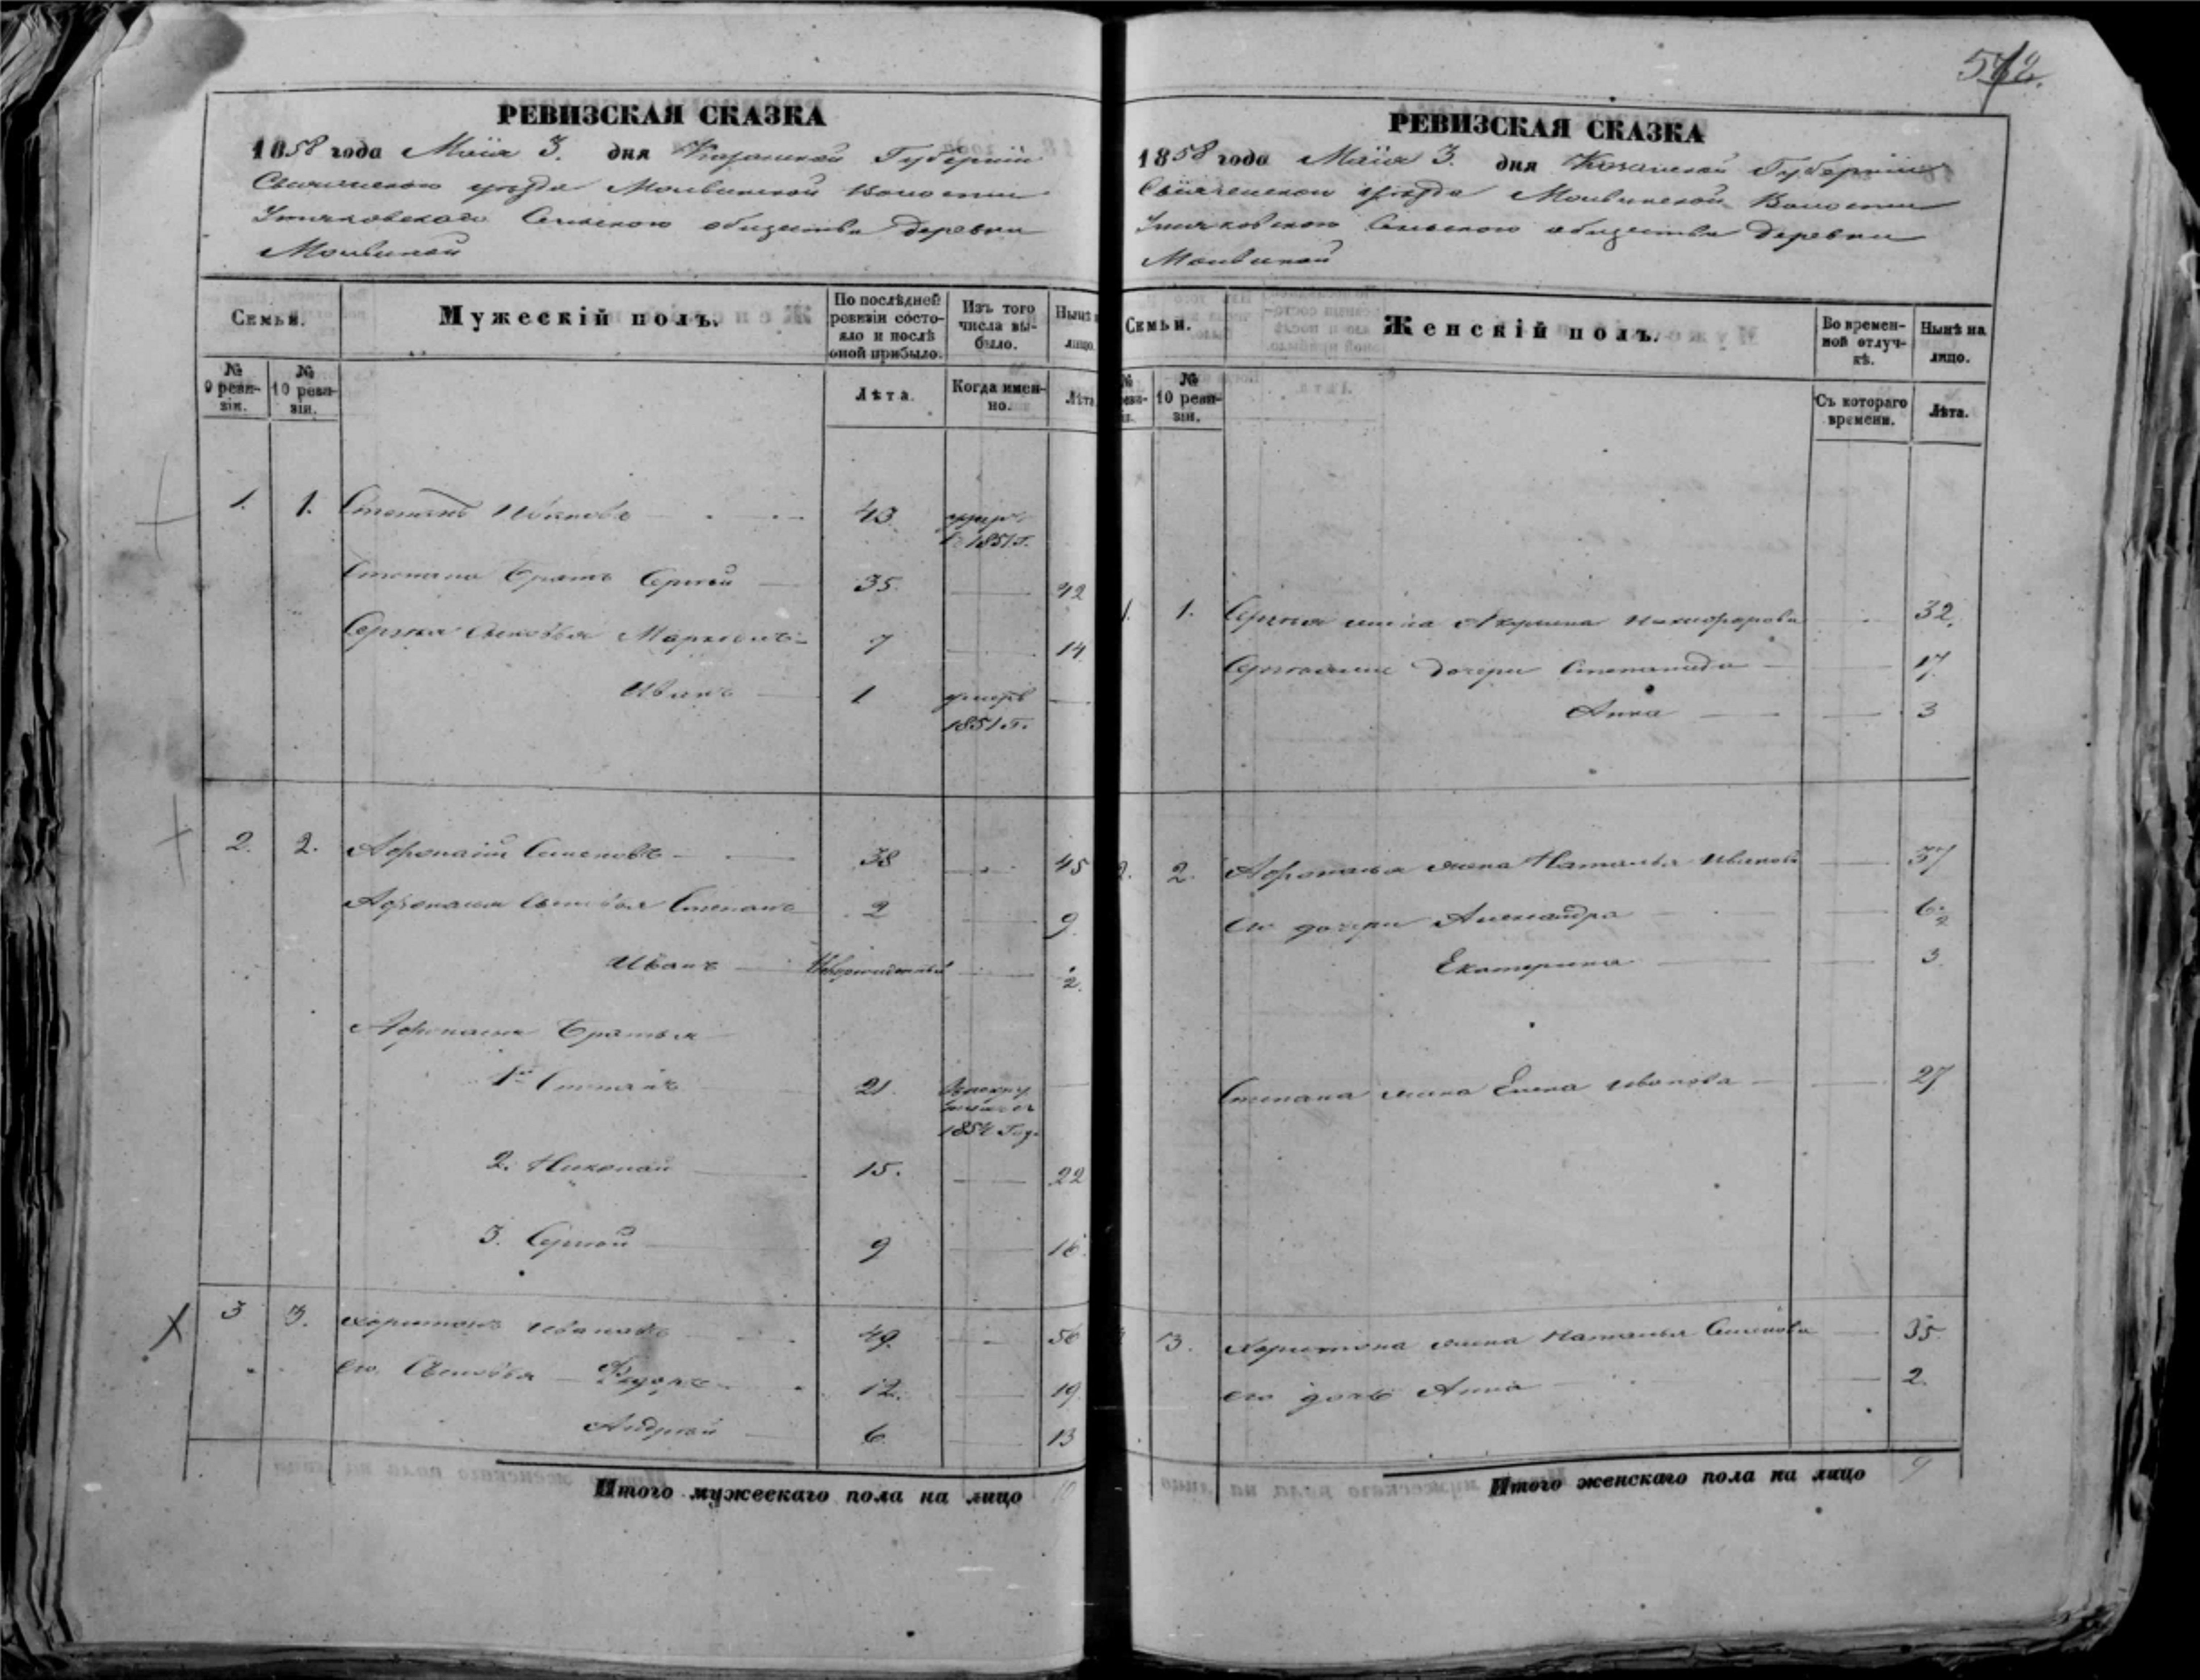 572.
РЕВИЗСКАЯ СКАЗКА
1858 года Маія 3. дня Казанской Губерніи
Свіяжскаго уѣзда Моквинской Волости
Сельскаго общества деревни
Моквиной
Семьи.
Мужескій полъ.
По послѣдней ревизіи состояло и послѣ оной прибыло.
Изъ того числа выбыло.
Нынѣ лицо.
№ 9 ревизіи.
№ 10 ревизіи.
Лѣта.
Когда именно.
Лѣта
1. 1. Степанъ Ивановъ 43. умеръ
въ 1851 г.
Степана Братъ Сергѣй 35. 42
Сергѣя сыновья 7 14
Иванъ 1 умеръ
1851 г.
2. 2. Афонасій Семеновъ 38 45
Афонасья сыновья Степанъ 2 9.
Иванъ Новорожденный 2.
Афонасья Братья
1й Степанъ 21.
2. Николай 15. 22
3. Сергѣй 9 16.
3 3. Харитонъ Ивановъ 49. 56
его Сыновья Ѳедоръ 12. 19
Андрей 6 13
Итого мужескаго пола на лицо 10
РЕВИЗСКАЯ СКАЗКА
1858 года Маія 3. дня Казанской Губерніи
Свіяжскаго уѣзда Моквинской Волости
Сельскаго общества деревни
Моквиной
Семьи.
Женскій полъ.
Во временной отлучкѣ.
Нынѣ на лицо.
№ 10 ревизіи.
Съ котораго времени.
Лѣта.
1. 1. Сергѣя жена Акулина Никифорова 32.
Сергѣевы дочери Степанида 17.
Анна 3
2. 2. Афонасья жена Наталья Иванова 37
его дочери Александра 6½
Екатерина 3
Степана жена Елена Иванова 27
3. Харитона жена Наталья Семенова 35.
его дочь Анна 2.
Итого женскаго пола на лицо 9